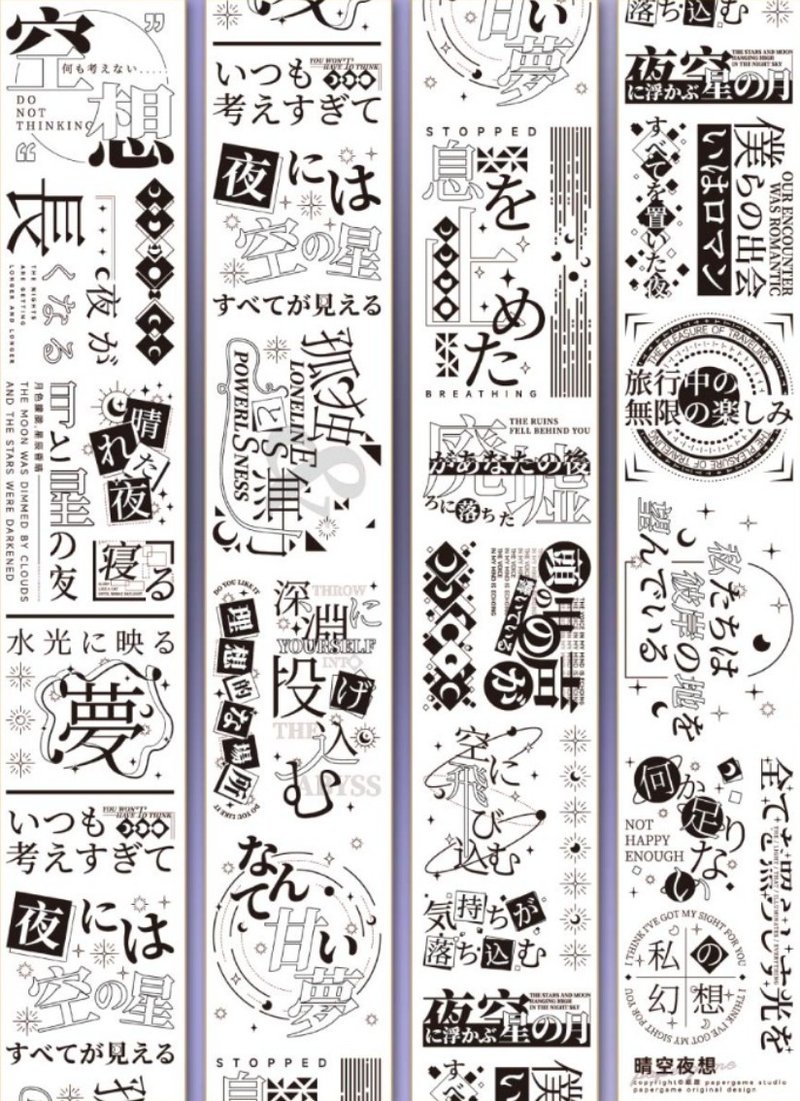 空想
何も考えない.....
DO
NOT
THINKING
長くなる
夜が
THE NIGHTS
ARE GETTING
LONGER AND LONGER
晴れた夜
月と星の夜
THE MOON WAS DIMMED BY CLOUDS
AND THE STARS WERE DARKENED
寝る
水光に映る
夢
いつも
YOU WON'T
HAVE TO THINK
考えすぎて
夜には
空の星
すべてが見える
いつも
YOU WON'T
HAVE TO THINK
考えすぎて
夜には
空の星
すべてが見える
孤独
と
無
LONELINE
&
IS
POWERLESSNESS
DO YOU LIKE IT
理想的な場所
DO YOU LIKE IT
深淵に
THROW
YOURSELF
INTO
投げ
THE
込む
ABYSS
なんて
甘い
夢
STOPPED
甘い
夢
STOPPED
息を
止めた
BREATHING
THE RUINS
FELL BEHIND YOU
廃墟
があなたの後
ろに落ちた
頭の
中の声が
響いている
THE VOICE
IN MY MIND IS ECHOING
空に
飛び
込む
気持ちが
落ち込む
夜空
THE STARS AND MOON
HANGING HIGH
IN THE NIGHT SKY
に浮かぶ星の月
落ち込む
夜空
THE STARS AND MOON
HANGING HIGH
IN THE NIGHT SKY
に浮かぶ星の月
僕らの出会
いはロマン
OUR ENCOUNTER
WAS ROMANTIC
すべてを置いた夜
THE PLEASURE OF TRAVELING
旅行中の
無限の楽しみ
THE PLEASURE OF TRAVELING
私たちは
彼岸の地を
望んでいる
何か足りない
NOT
HAPPY
ENOUGH
全てを照らす光を
I THINK I'VE GOT MY SIGHT FOR YOU
私の
幻想
I THINK I'VE GOT MY SIGHT FOR YOU
晴空夜想
copyright©紙遊 papergame studio
papergame original design